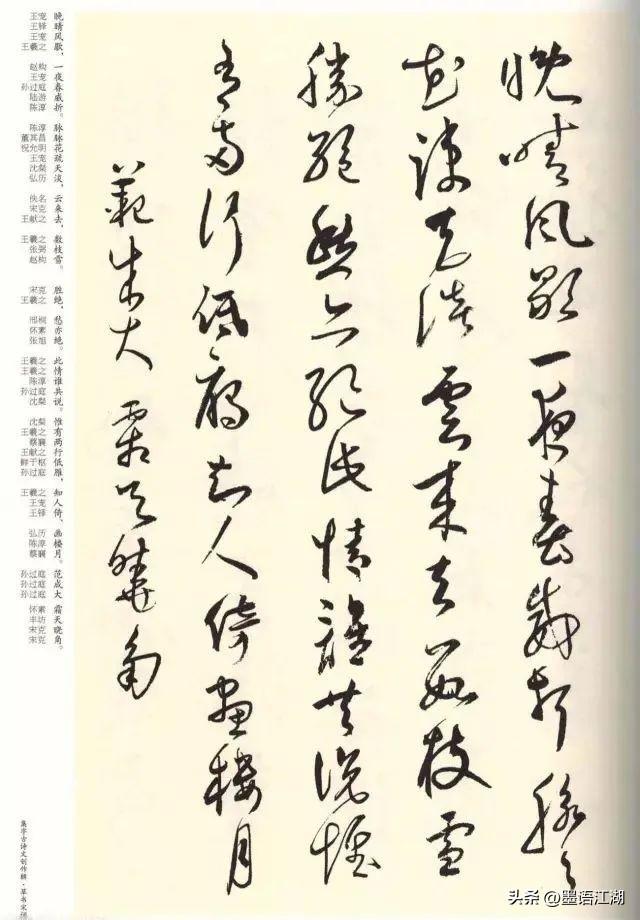 晚晴風歇一夜春威折脉脉
花疏天淡雲來去數枝雪
勝絕愁亦絕此情誰共說惟
有兩行低雁知人倚畫樓月
範成大 霜天曉角
王宠 晚
王铎 晴
王宠 风
王羲之 歇，
赵构 一
王宠 夜
孙过庭 春
陆游 威
陈淳 折。
陈淳 脉
董其昌 脉
祝允明 花
王宠 疏
沈粲 天
弘历 淡，
佚名 云
宋克 来
王献之 去，
王羲之 数
张弼 枝
赵构 雪。
宋克 胜
王羲之 绝，
邢桐 愁
怀素 亦
张旭 绝。
王羲之 此
王羲之 情
陈淳 谁
孙过庭 共
沈粲 说。
沈粲 惟
王羲之 有
蔡襄 两
王献之 行
鲜于枢 低
孙过庭 雁，
王羲之 知
王宠 人
王铎 倚，
弘历 画
陈淳 楼
蔡襄 月。
孙过庭 范
孙过庭 成
孙过庭 大
怀素 霜
丰坊 天
宋克 晓
宋克 角。
集字古诗文创作辑·草书宋词
头条 @墨语江湖